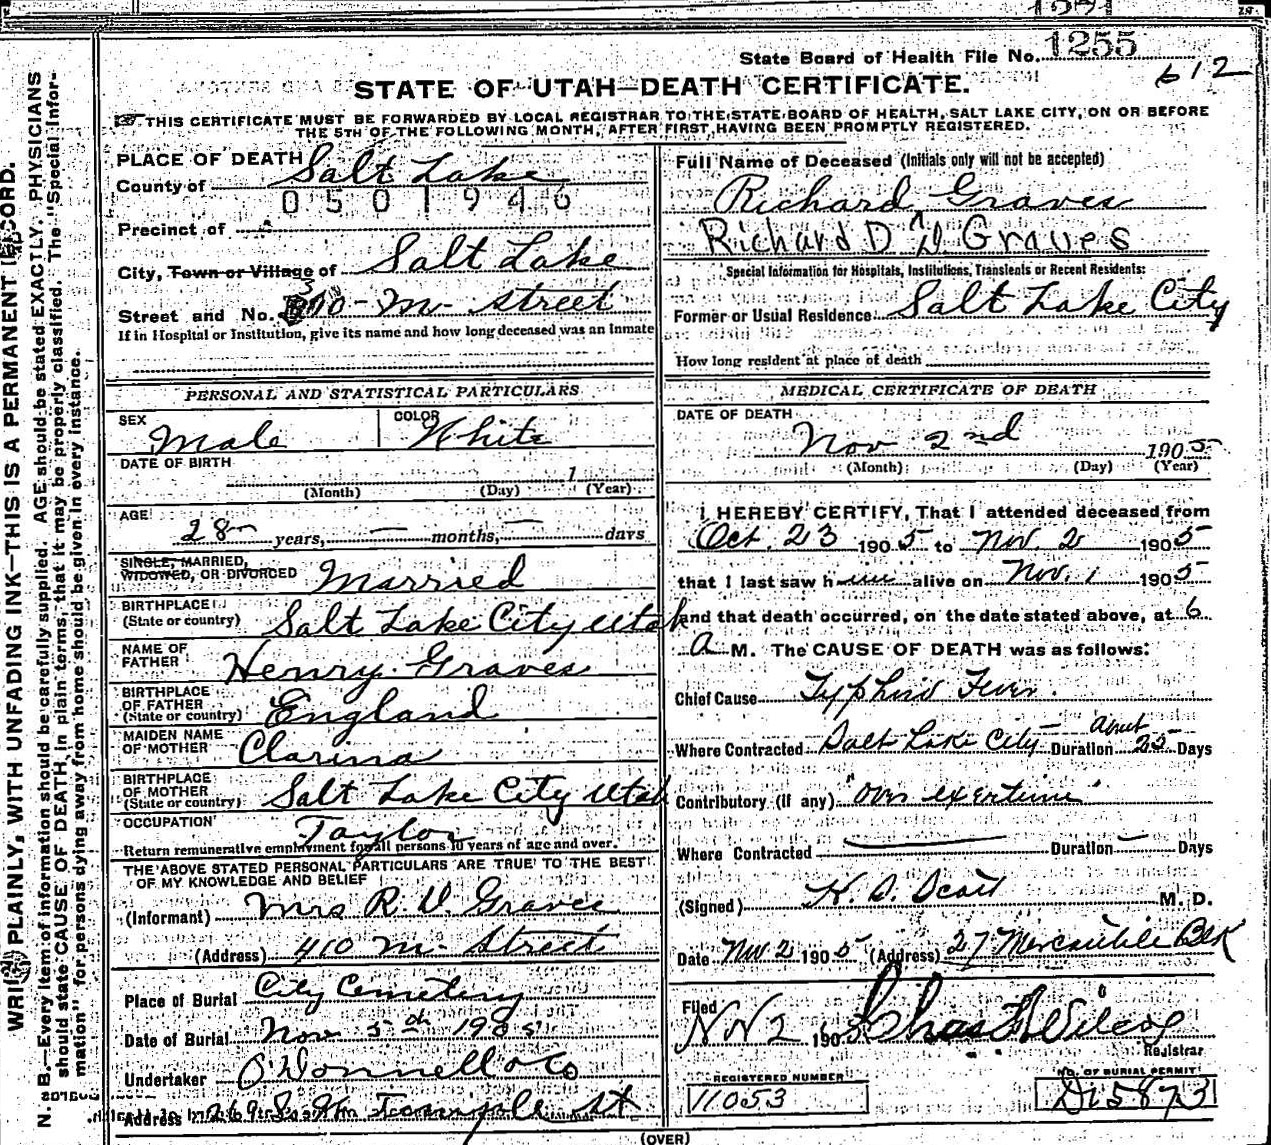 1271
State Board of Health File No. 1255
612
STATE OF UTAH—DEATH CERTIFICATE.
THIS CERTIFICATE MUST BE FORWARDED BY LOCAL REGISTRAR TO THE STATE BOARD OF HEALTH, SALT LAKE CITY, ON OR BEFORE
THE 5TH OF THE FOLLOWING MONTH, AFTER FIRST HAVING BEEN PROMPTLY REGISTERED.
PLACE OF DEATH
County of Salt Lake
0501946
Precinct of
City, Town or Village of Salt Lake
Street and No. M street
If in Hospital or Institution, give its name and how long deceased was an Inmate
Full Name of Deceased (Initials only will not be accepted)
Richard Graves
Richard D Graves
Special Information for Hospitals, Institutions, Transients or Recent Residents:
Former or Usual Residence Salt Lake City
How long resident at place of death
PERSONAL AND STATISTICAL PARTICULARS
SEX Male COLOR White
DATE OF BIRTH
1
(Month) (Day) (Year)
AGE
28 years, — months, — days
SINGLE, MARRIED,
WIDOWED, OR DIVORCED Married
BIRTHPLACE
(State or country) Salt Lake City Utah
NAME OF
FATHER Henry Graves
BIRTHPLACE
OF FATHER
(State or country) England
MAIDEN NAME
OF MOTHER Clarina
BIRTHPLACE
OF MOTHER
(State or country) Salt Lake City Utah
OCCUPATION Taylor
Return remunerative employment for all persons 10 years of age and over.
THE ABOVE STATED PERSONAL PARTICULARS ARE TRUE TO THE BEST
OF MY KNOWLEDGE AND BELIEF
(Informant) Mrs R. D. Graves
(Address) 410 M Street
Place of Burial City Cemetery
Date of Burial Nov 5th 1905
Undertaker O'Donnell & Co
Address Temple St
MEDICAL CERTIFICATE OF DEATH
DATE OF DEATH
Nov 2nd 1905
(Month) (Day) (Year)
I HEREBY CERTIFY, That I attended deceased from
Oct. 23 1905 to Nov. 2 1905
that I last saw him alive on Nov. 1 1905
and that death occurred, on the date stated above, at 6
A M. The CAUSE OF DEATH was as follows:
Chief Cause Typhoid Fever.
Where Contracted Salt Lake City Duration About 25 Days
Contributory (if any) "Over exertion"
Where Contracted — Duration — Days
(Signed) Scott M. D.
Date Nov 2 1905 (Address) 27 Mercantile Blk
Filed Nov 2 1905 Chas Wilcox
Registrar
REGISTERED NUMBER
11053
NO. OF BURIAL PERMIT
D15873
(OVER)
WRITE PLAINLY, WITH UNFADING INK—THIS IS A PERMANENT RECORD.
N. B.—Every item of information should be carefully supplied. AGE should be stated EXACTLY. PHYSICIANS
should state CAUSE OF DEATH in plain terms, that it may be properly classified. The "Special Infor-
mation" for persons dying away from home should be given in every instance.